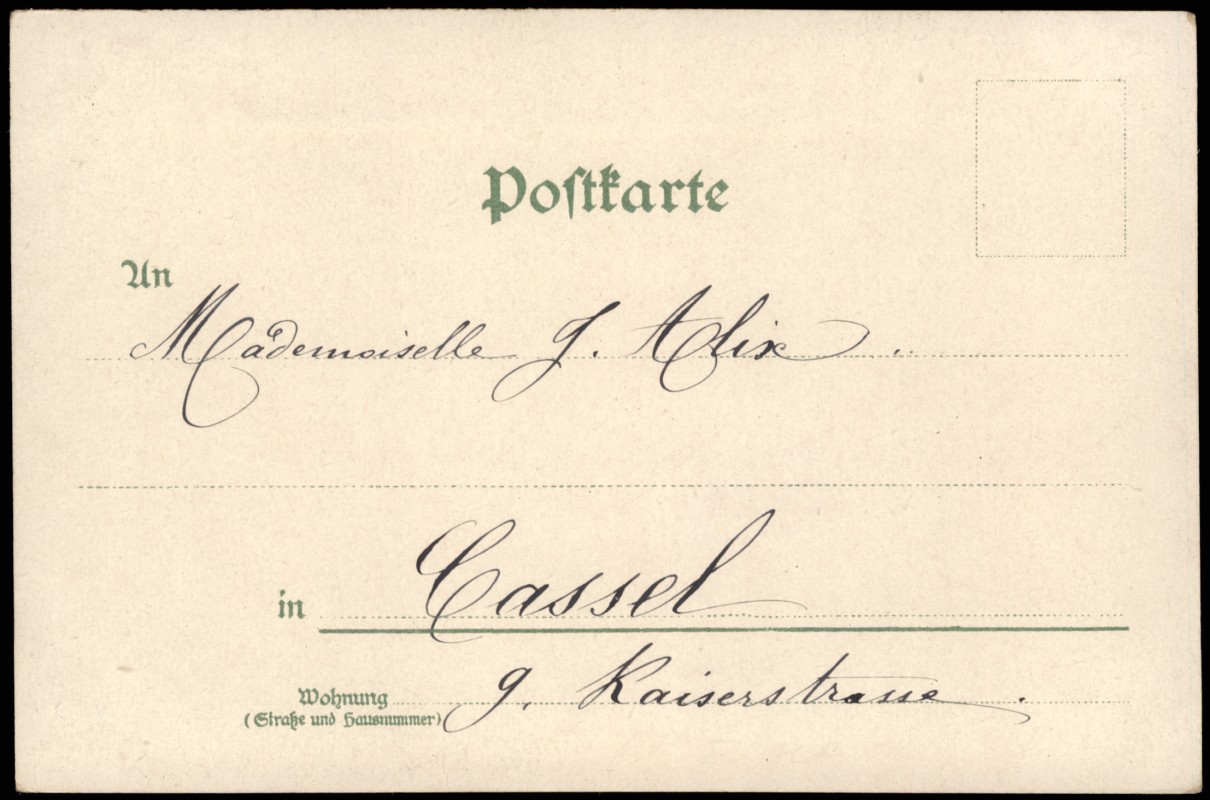 Postkarte
An
Mademoiselle J. Alix
in Cassel
Wohnung 9. Kaiserstrasse.
(Straße und Hausnummer)